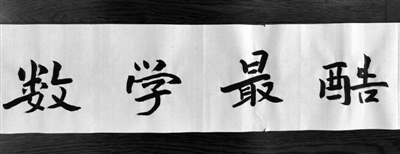 数学最酷